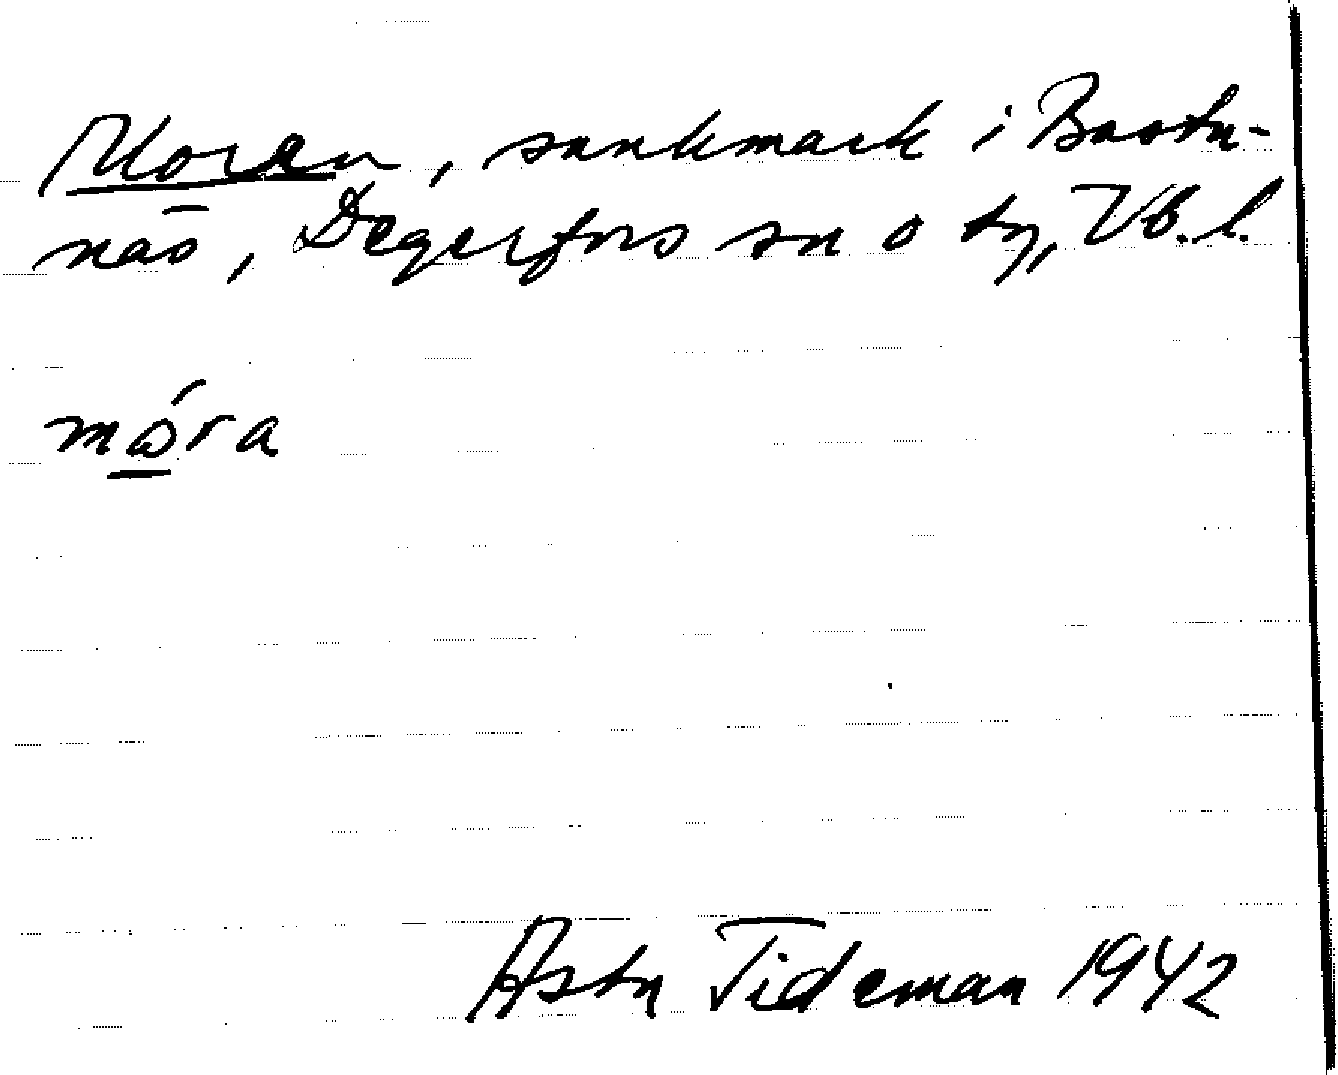 Moran, sankmark i Bastu-
näs, Degerfors sn o tg, Vb. l.
mó̲ra
Asta Tideman 1942